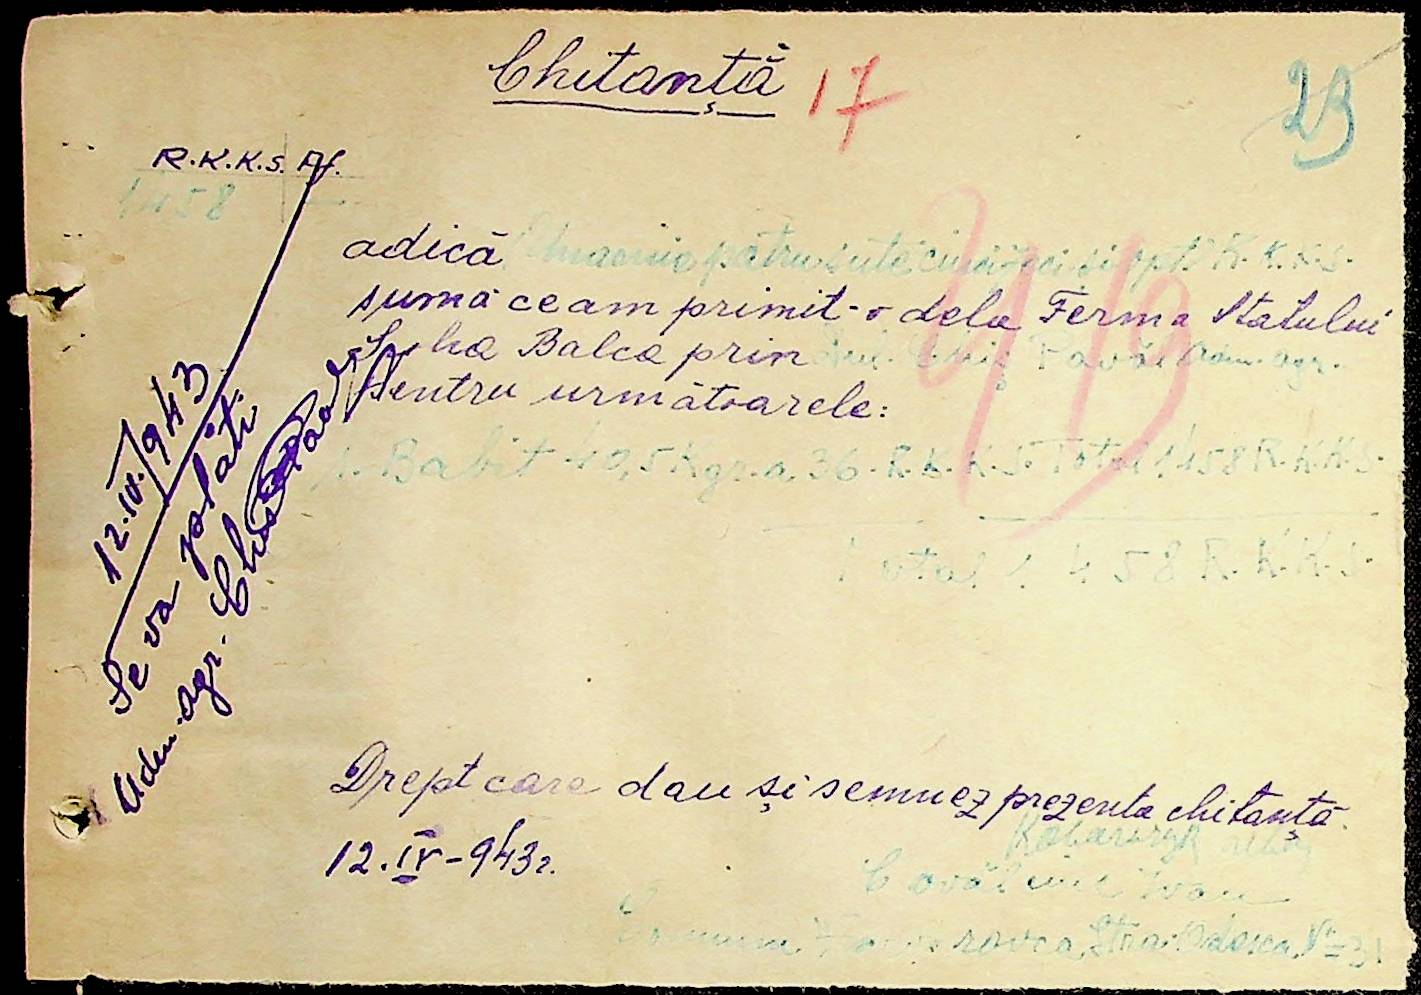 Chitanță 17
23
R.K.K.S. Pf.
1458
adică Unamie pătrusute cinzeci și opt R.K.K.S.
suma ce am primit-o dela Ferma Statului
Suha Balca prin Pavăl Adm. agr.
Pentru următoarele:
1. Babit 40,5 Kgr. a 36 R.K.K.S. Total 1458 R.K.K.S.
Total 1458 R.K.K.S.
419
12.IV.1943
Se va plăti
Adm. agr.
Drept care dau și semnez prezenta chitanță.
12.IV-943 г.
Covălciuc Ivan
Comuna Stra. Odesca No 31